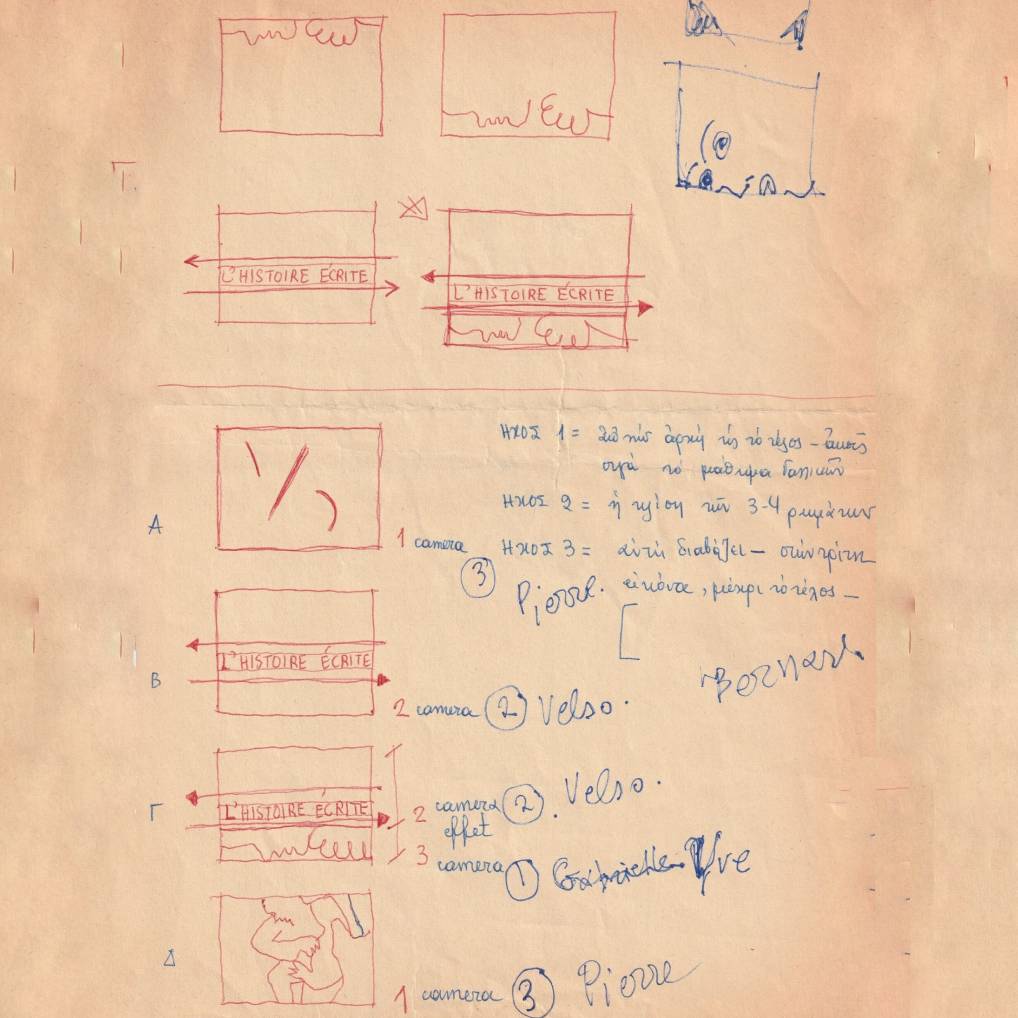 L'HISTOIRE ÉCRITE
L'HISTOIRE ÉCRITE
ΗΧΟΣ 1 = ἀπὸ τὴν ἀρχὴ ὡς τὸ τέλος –
σιγὰ τὸ μάθημα Γαλλικῶν
ΗΧΟΣ 2 = ἡ κλίση τῶν 3-4 ρημάτων
ΗΧΟΣ 3 = αὐτὴ διαβάζει – στὴν τρίτη
εἰκόνα, μέχρι τὸ τέλος –
A
1 camera
3
Pierre.
Bernard
B
L'HISTOIRE ÉCRITE
2 camera 2 Velso.
Γ
L'HISTOIRE ÉCRITE
2 camera 2. Velso.
effet
3 camera 1 Yve
Δ
1 camera 3 Pierre